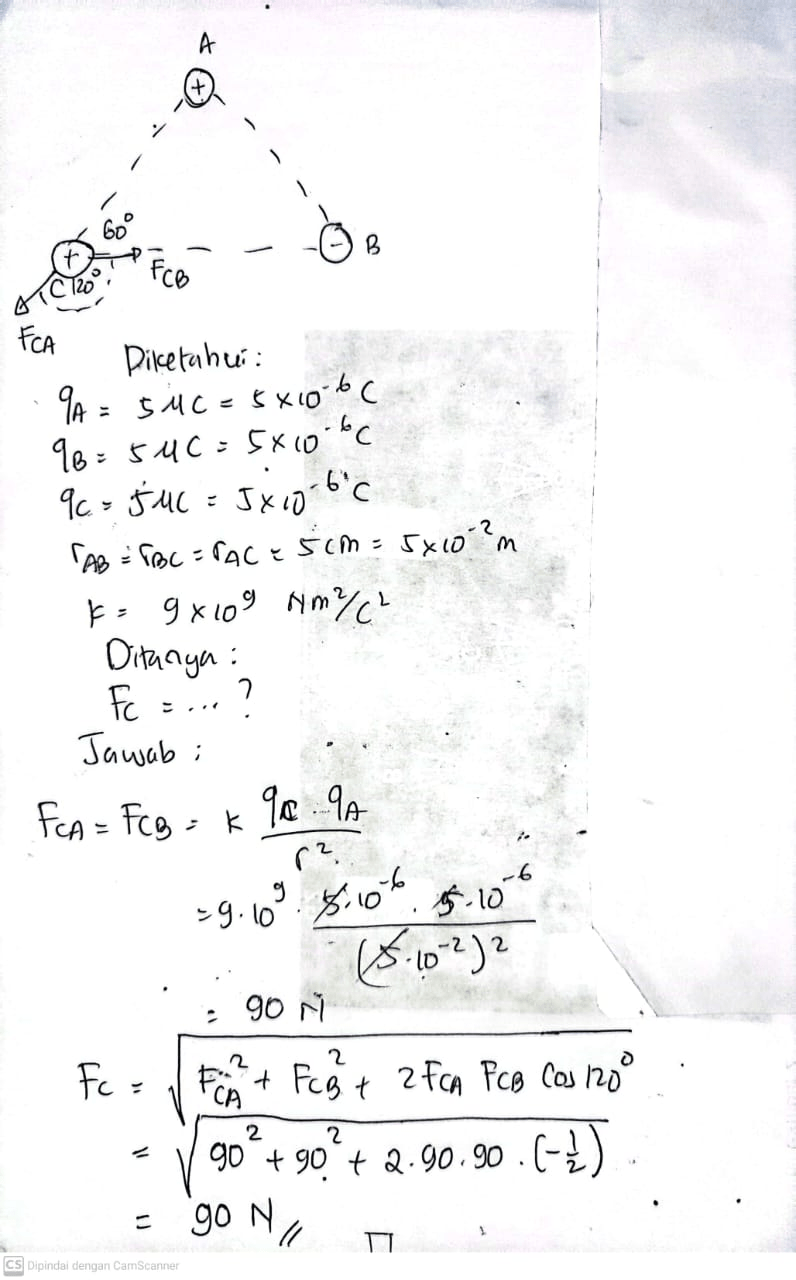 A
+
60°
+
- B
FCB
C 120°
FCA
Diketahui :
qA = 5 MC = 5 x 10^-6 C
qB = 5 MC = 5 x 10^-6 C
qC = 5 MC = 5 x 10^-6 C
rAB = rBC = rAC = 5 cm = 5 x 10^-2 m
k = 9 x 10^9 Nm²/C²
Ditanya :
Fc = ... ?
Jawab ;
FCA = FCB = k qC . qA / r²
= 9 . 10^9 . 5 . 10^-6 . 5 . 10^-6 / (5 . 10^-2)²
= 90 N
Fc = √(FCA² + FCB² + 2 FCA FCB Cos 120°)
= √(90² + 90² + 2 . 90 . 90 . (-1/2))
= 90 N //
CS Dipindai dengan CamScanner